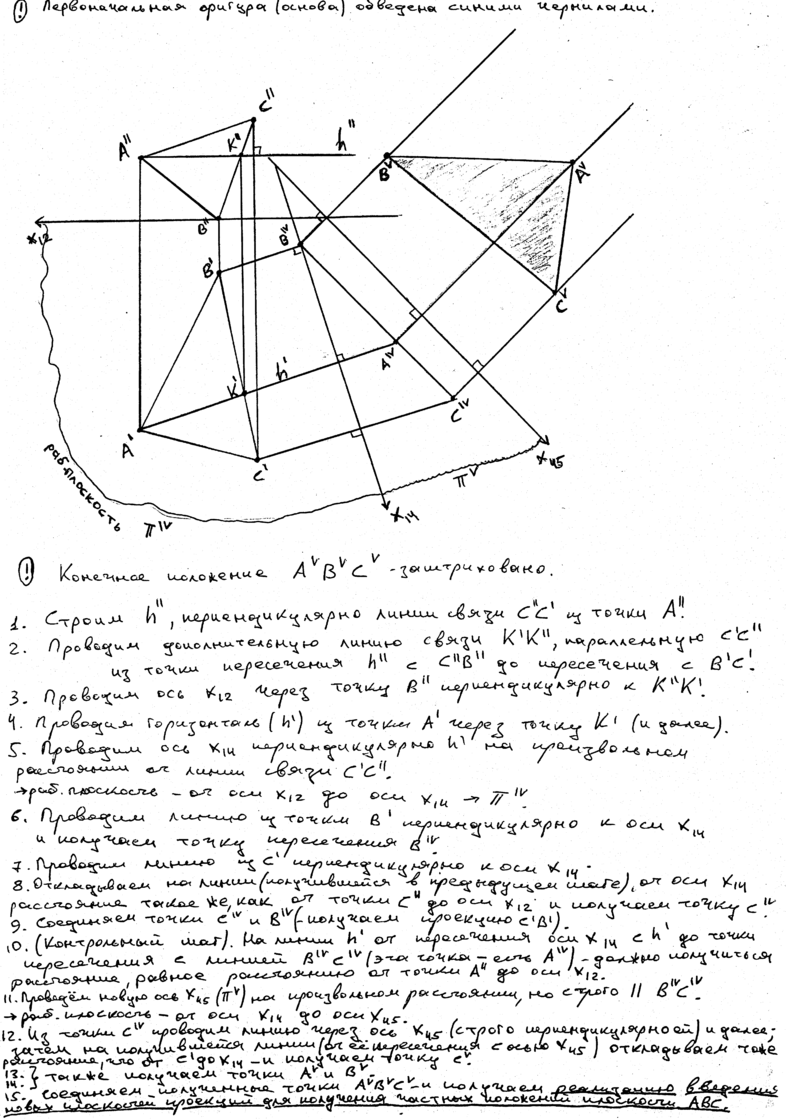 ! Первоначальная фигура (основа) обведена синими чернилами.
C''
A''
K''
h''
B^V
A^V
x₁₂
B''
B^IV
B'
C^V
h'
A^IV
K'
C^IV
A'
C'
раб.плоскость
π^IV
π^V
x₄₅
x₁₄
! Конечное положение A^V B^V C^V - заштриховано.
1. Строим h'', перпендикулярно линии связи C''C' из точки A''.
2. Проводим дополнительную линию связи K'K'', параллельную C'C''
из точки пересечения h'' с C''B'' до пересечения с B'C'.
3. Проводим ось x₁₂ через точку B'' перпендикулярно к K''K'.
4. Проводим горизонталь (h') из точки A' через точку K' (и далее).
5. Проводим ось x₁₄ перпендикулярно h' на произвольном
расстоянии от линии связи C'C''.
→ раб. плоскость - от оси x₁₂ до оси x₁₄ → π^IV.
6. Проводим линию из точки B' перпендикулярно к оси x₁₄
и получаем точку пересечения B^IV.
7. Проводим линию из C' перпендикулярно к оси x₁₄.
8. Откладываем на линии (получившейся в предыдущем шаге), от оси x₁₄
расстояние такое же, как от точки C'' до оси x₁₂ и получаем точку C^IV.
9. Соединяем точки C^IV и B^IV (- получаем проекцию C'B').
10. (Контрольный шаг). На линии h' от пересечения оси x₁₄ с h' до точки
пересечения с линией B^IV C^IV (эта точка - есть A^IV) - должно получиться
расстояние, равное расстоянию от точки A'' до оси x₁₂.
11. Проведём новую ось x₄₅ (π^IV) на произвольном расстоянии, но строго || B^IV C^IV.
→ раб. плоскость - от оси x₁₄ до оси x₄₅.
12. Из точки C^IV проводим линию через ось x₄₅ (строго перпендикулярно ей) и далее;
затем на получившейся линии (от её пересечения с осью x₄₅) откладываем тоже
расстояние, что от C' до x₁₄ - и получаем точку C^V.
13. }
14. } также получаем точки A^V и B^V.
15. Соединяем полученные точки A^V B^V C^V - и получаем реализацию введения
новых плоскостей проекций для получения частных положений плоскости ABC.